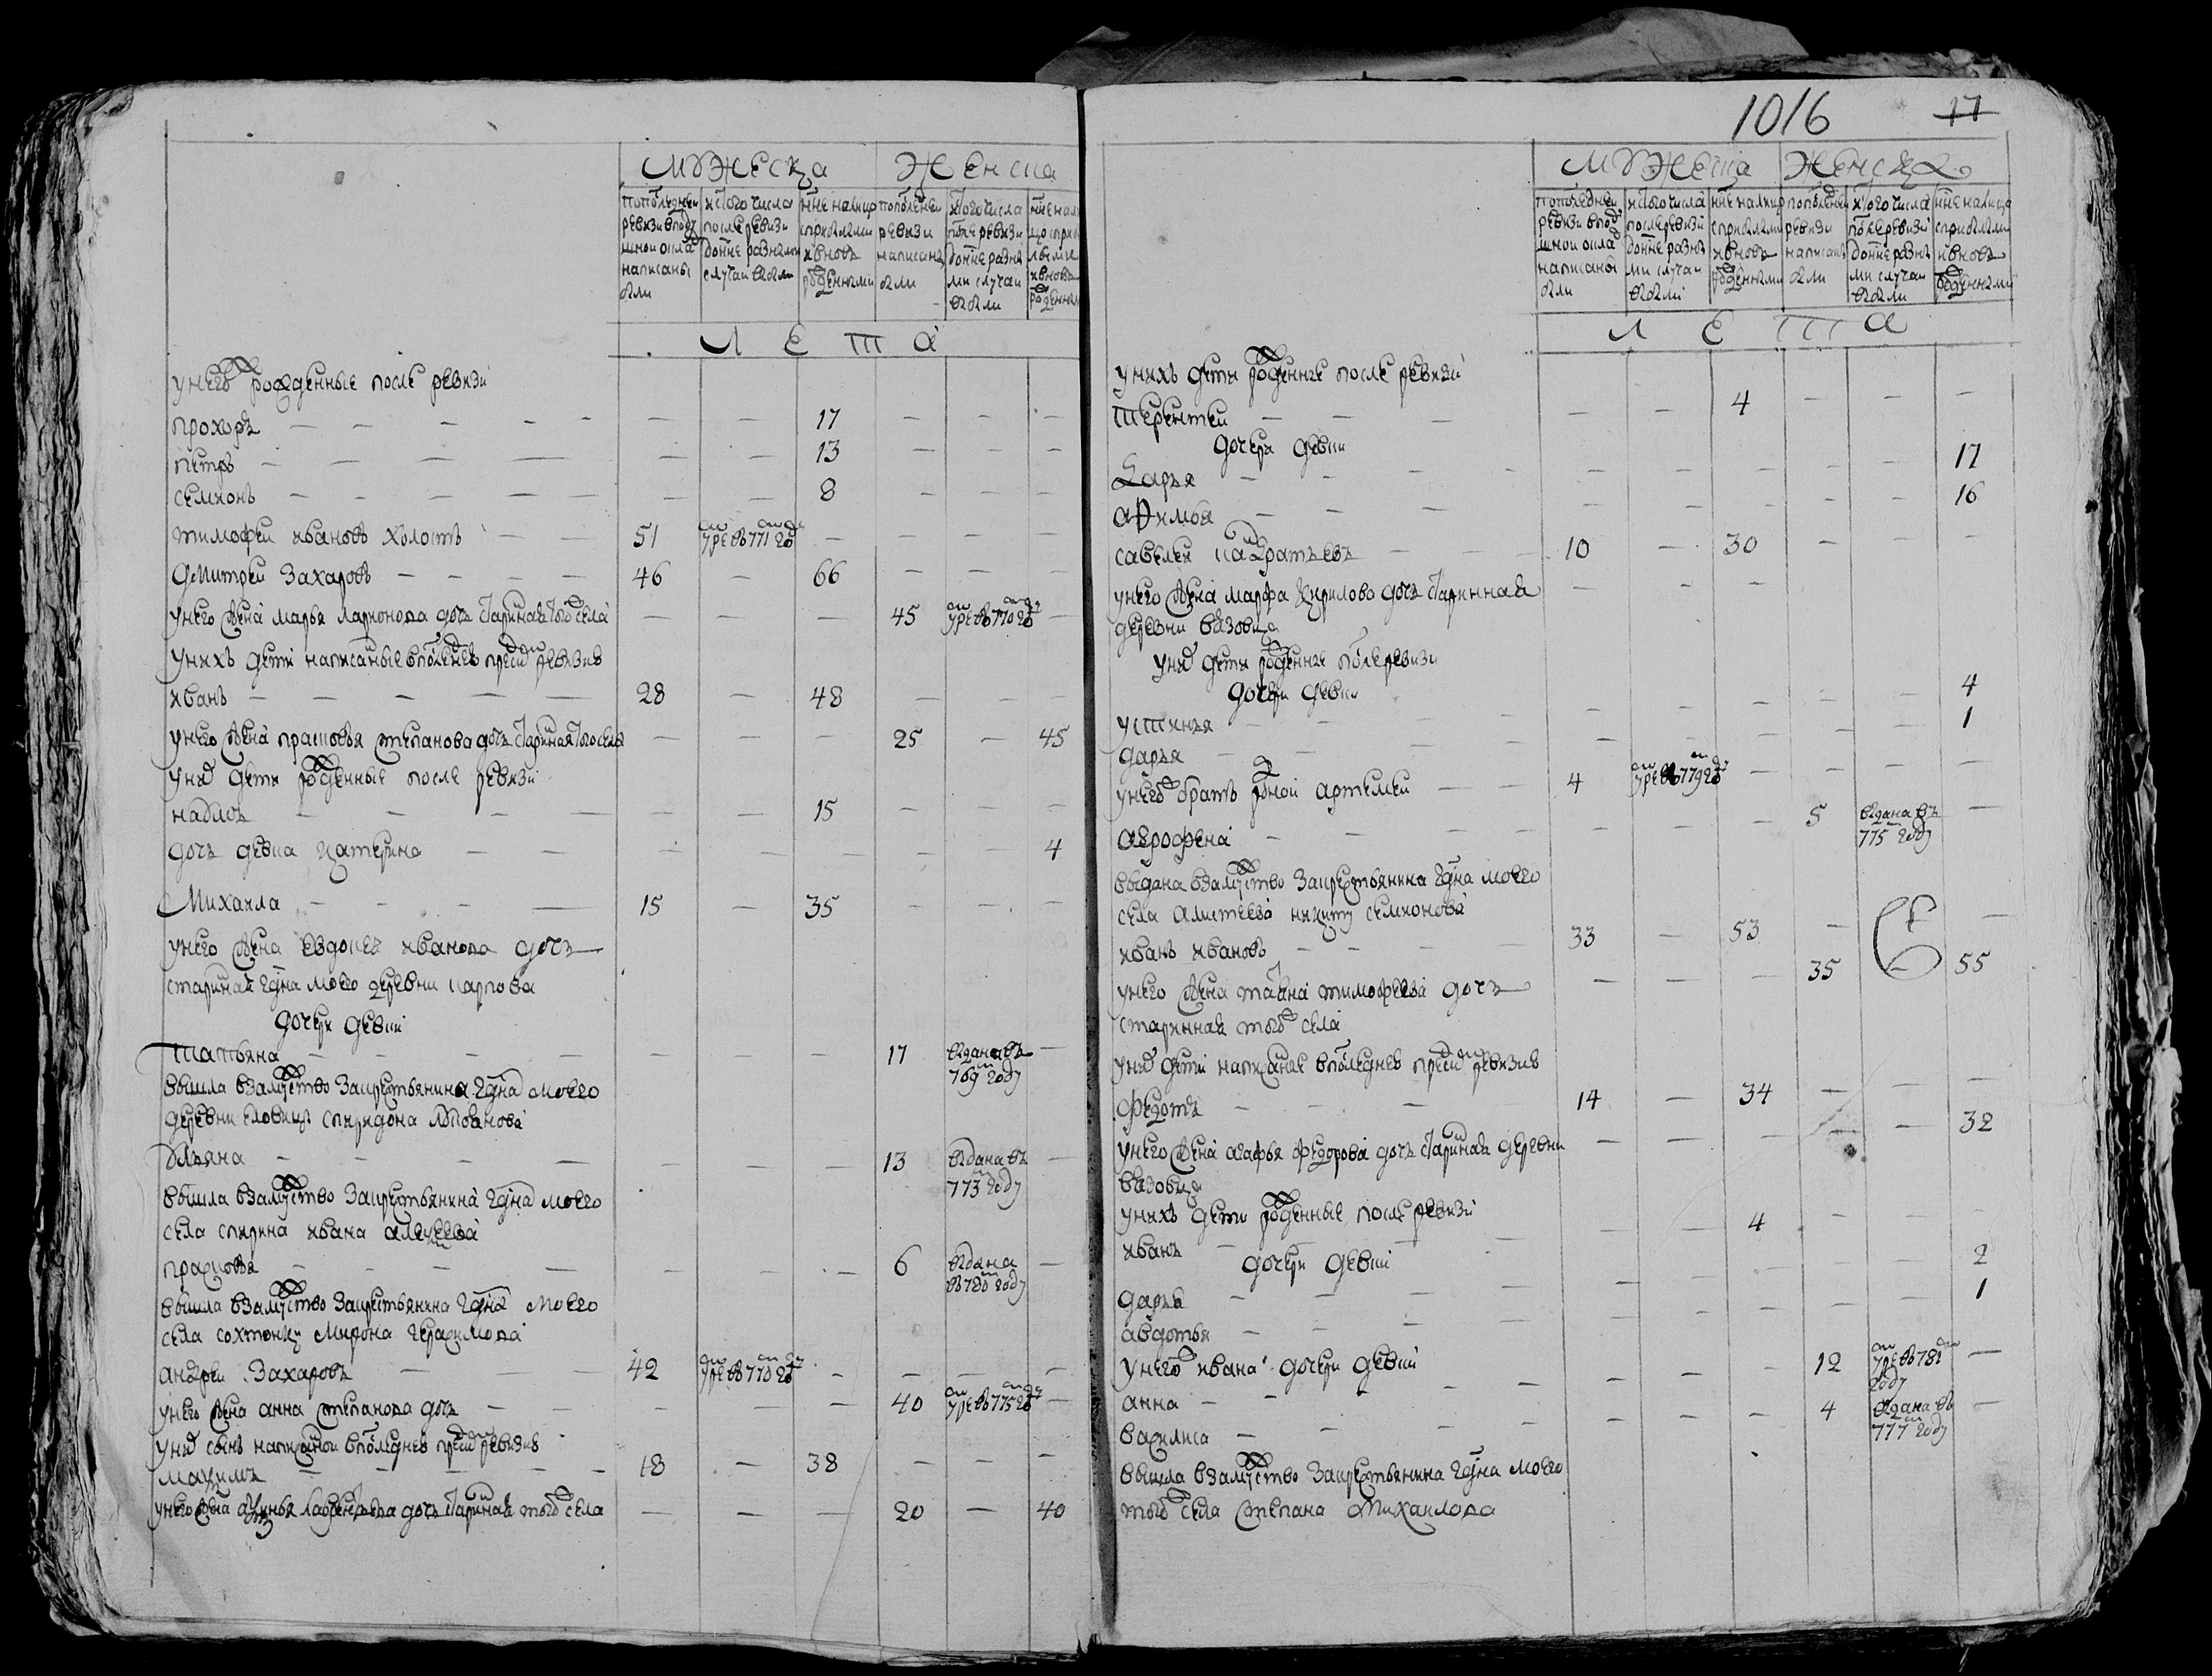 мȣжеска женска
пополедней ревизи вподушной оклад написаны были
ис того числа после ревизи до ннѣ разными случаи выбыли
ннѣ налицо сприбылыми ивновь рожденными
пополедней ревизи написаны были
ис того числа после ревизи до ннѣ разными случаи выбыли
ннѣ налицо сприбылыми ивновь рожденными
лета
унего рожденные после ревизи
прохоръ — — 17 — — —
петръ — — 13 — — —
семионъ — — 8 — — —
тимофеи ивановъ холостъ 51 умре въ 771 году — — — —
дмитреи захаровъ 46 — 66 — — —
унего жена марья ларионова дочь старинная того села — — — 45 умре въ 770 году —
унихъ дети написаные вполеднеи пред сей ревизие
иванъ 28 — 48 — — —
унего жена прасковья степанова дочь старинная того села — — — 25 — 45
уних дети рожденные после ревизи
павлъ — — 15 — — —
дочь девка катерина — — — — — 4
Михаила 15 — 35 — — —
унего жена евдокея иванова дочь
старинная гдна моего деревни карпова
дочери девки
татьяна — — — 17 выдана въ 769м году —
вышла взамужство закрестьянина гдна моего
деревни спиридона
ульяна — — — 13 выдана въ 773м году —
вышла взамужство закрестьянина гдна моего
села спирина ивана алексеева
прасковья — — — 6 выдана въ 780м году —
вышла взамужство закрестьянина гдна моего
села сохтонки мирона герасимова
андреи захаровъ 42 умре въ 770 году — — — —
унего жена анна степанова дочь — — — 40 умре въ 775 году —
уних сынъ написанои вполеднеи пред сей ревизие
максимъ 18 — 38 — — —
унего жена аксинья лаврентьева дочь старинная того села — — — 20 — 40
1016 17
мȣжеска женска
пополедней ревизи вподушной оклад написаны были
ис того числа после ревизи до ннѣ разными случаи выбыли
ннѣ налицо сприбылыми ивновь рожденными
пополедней ревизи написаны были
ис того числа после ревизи до ннѣ разными случаи выбыли
ннѣ налицо сприбылыми ивновь рожденными
лета
унихъ дети рожденные после ревизи
терентеи — — 4 — — —
дочери девки
дарья — — — — — 17
афимья — — — — — 16
савелеи кандратьевъ 10 — 30 — — —
унего жена марфа кирилова дочь старинная
деревни вязовца
уних дети рожденные после ревизи
дочери девки
устинья — — — — — 4
дарья — — — — — 1
унего братъ родной артемеи 4 умре въ 779 году — — — —
аврофена — — — 5 выдана въ 775м году —
выдана взамужство закрестьянина гдна моего
села алистеева никиту семионова
иванъ ивановъ 33 — 53 — — —
унего жена татьяна тимофеева дочь — — — 35 — 55
старинная того села
уних дети написаные вполеднеи пред сей ревизие
федотъ 14 — 34 — — —
унего жена агафья федорова дочь старинная деревни — — — — — 32
вязовца
унихъ дети рожденные после ревизи
иванъ — — 4 — — —
дочери девки
дарья — — — — — 2
авдотья — — — — — 1
унего ивана дочери девки
анна — — — 12 умре въ 781 году —
василиса — — — 4 выдана въ 777м году —
вышла взамужство закрестьянина гдна моего
того села степана михаилова